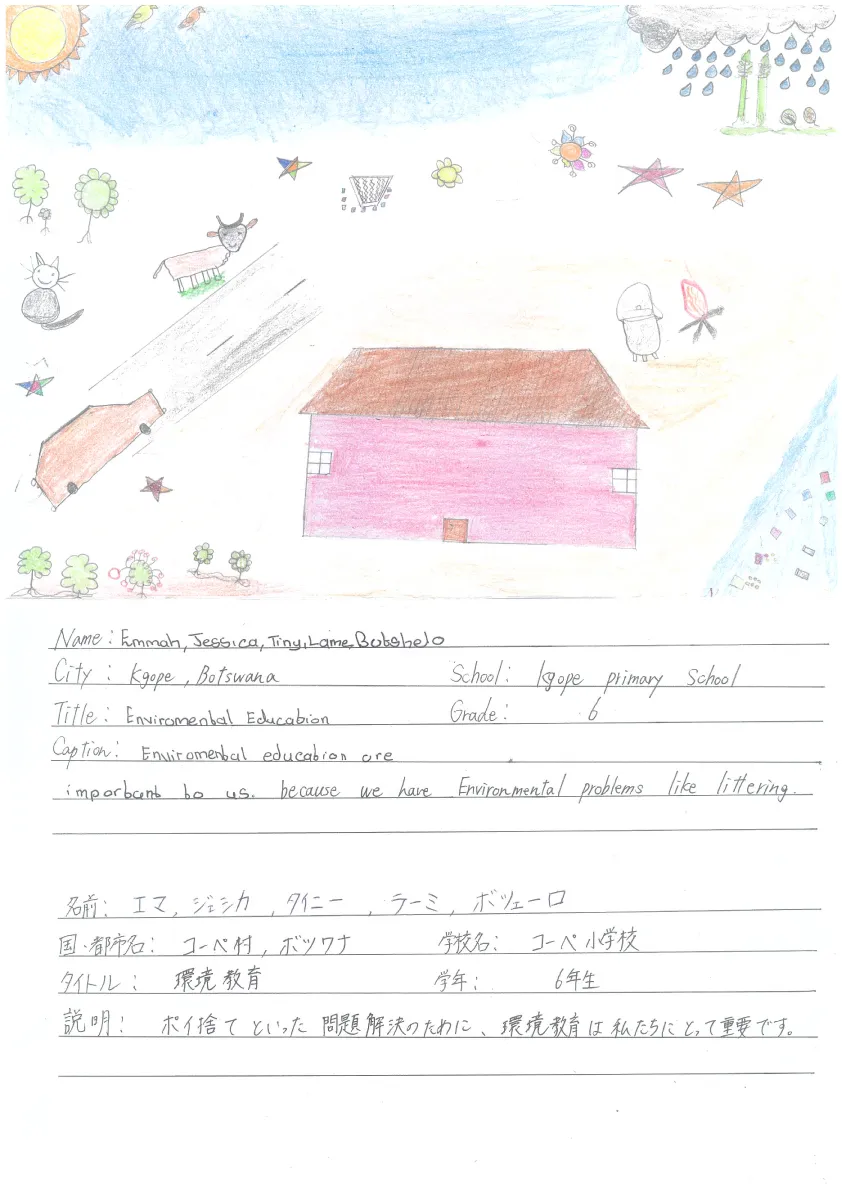 Name: Emmah, Jessica, Tiny, Lame, Botshelo
City: Kgope, Botswana School: Kgope primary School
Title: Enviromental Education Grade: 6
Caption: Enviromental education are
important to us. because we have Environmental problems like littering.
名前: エマ, ジェシカ, タイニー, ラーミ, ボツェーロ
国・都市名: コーペ村, ボツワナ 学校名: コーペ小学校
タイトル: 環境教育 学年: 6年生
説明: ポイ捨てといった問題解決のために、環境教育は私たちにとって重要です。